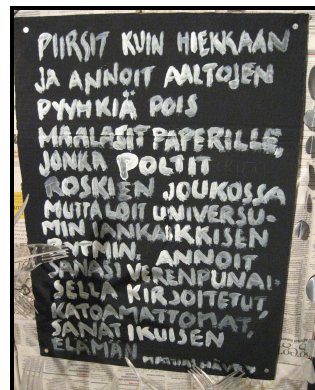 PIIRSIT KUIN HIEKKAAN
JA ANNOIT AALTOJEN
PYYHKIÄ POIS
MAALASIT PAPERILLE,
JONKA POLTIT
ROSKIEN JOUKOSSA
MUTTA LOIT UNIVERSU-
MIN IANKAIKKISEN
RYTMIN. ANNOIT
SANASI VERENPUNAI-
SELLA KIRJOITETUT,
KATOAMATTOMAT,
SANAT IKUISEN
ELÄMÄN